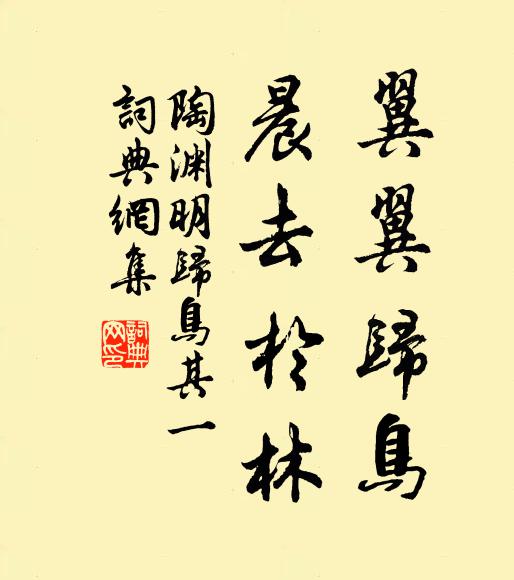 翼翼歸鳥
晨去於林
陶淵明歸鳥其一
詞典網集
詞典網印